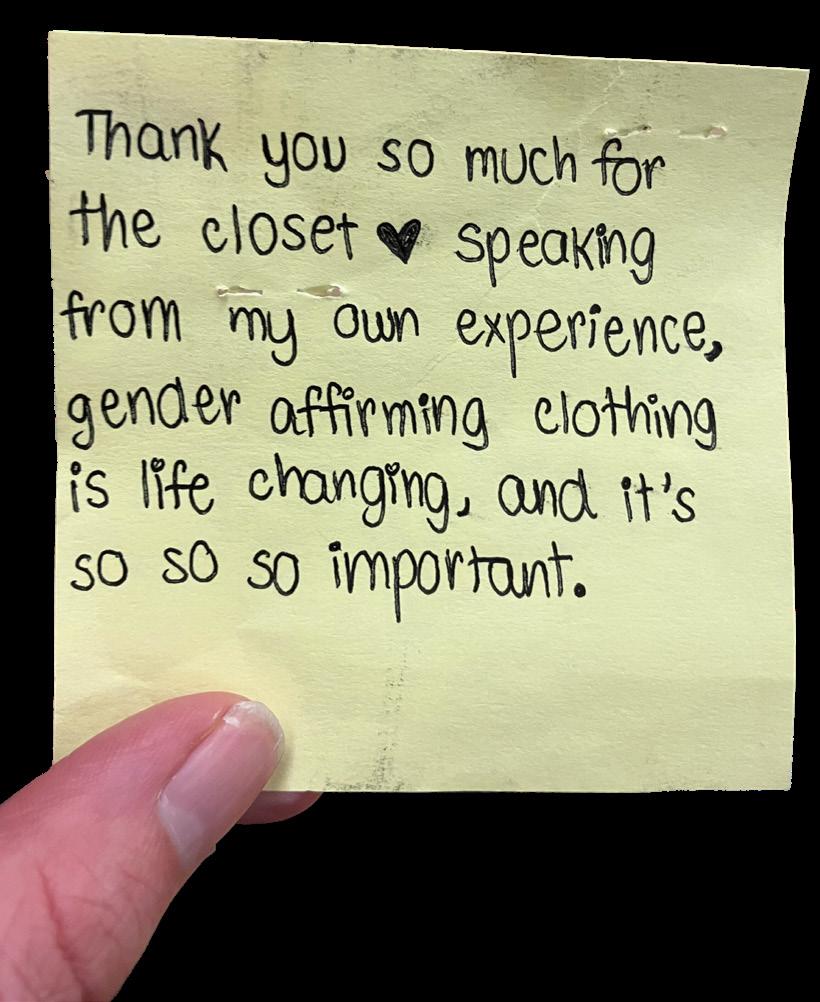 Thank you so much for
the closet ♥ speaking
from my own experience,
gender affirming clothing
is life changing, and it's
so so so important.